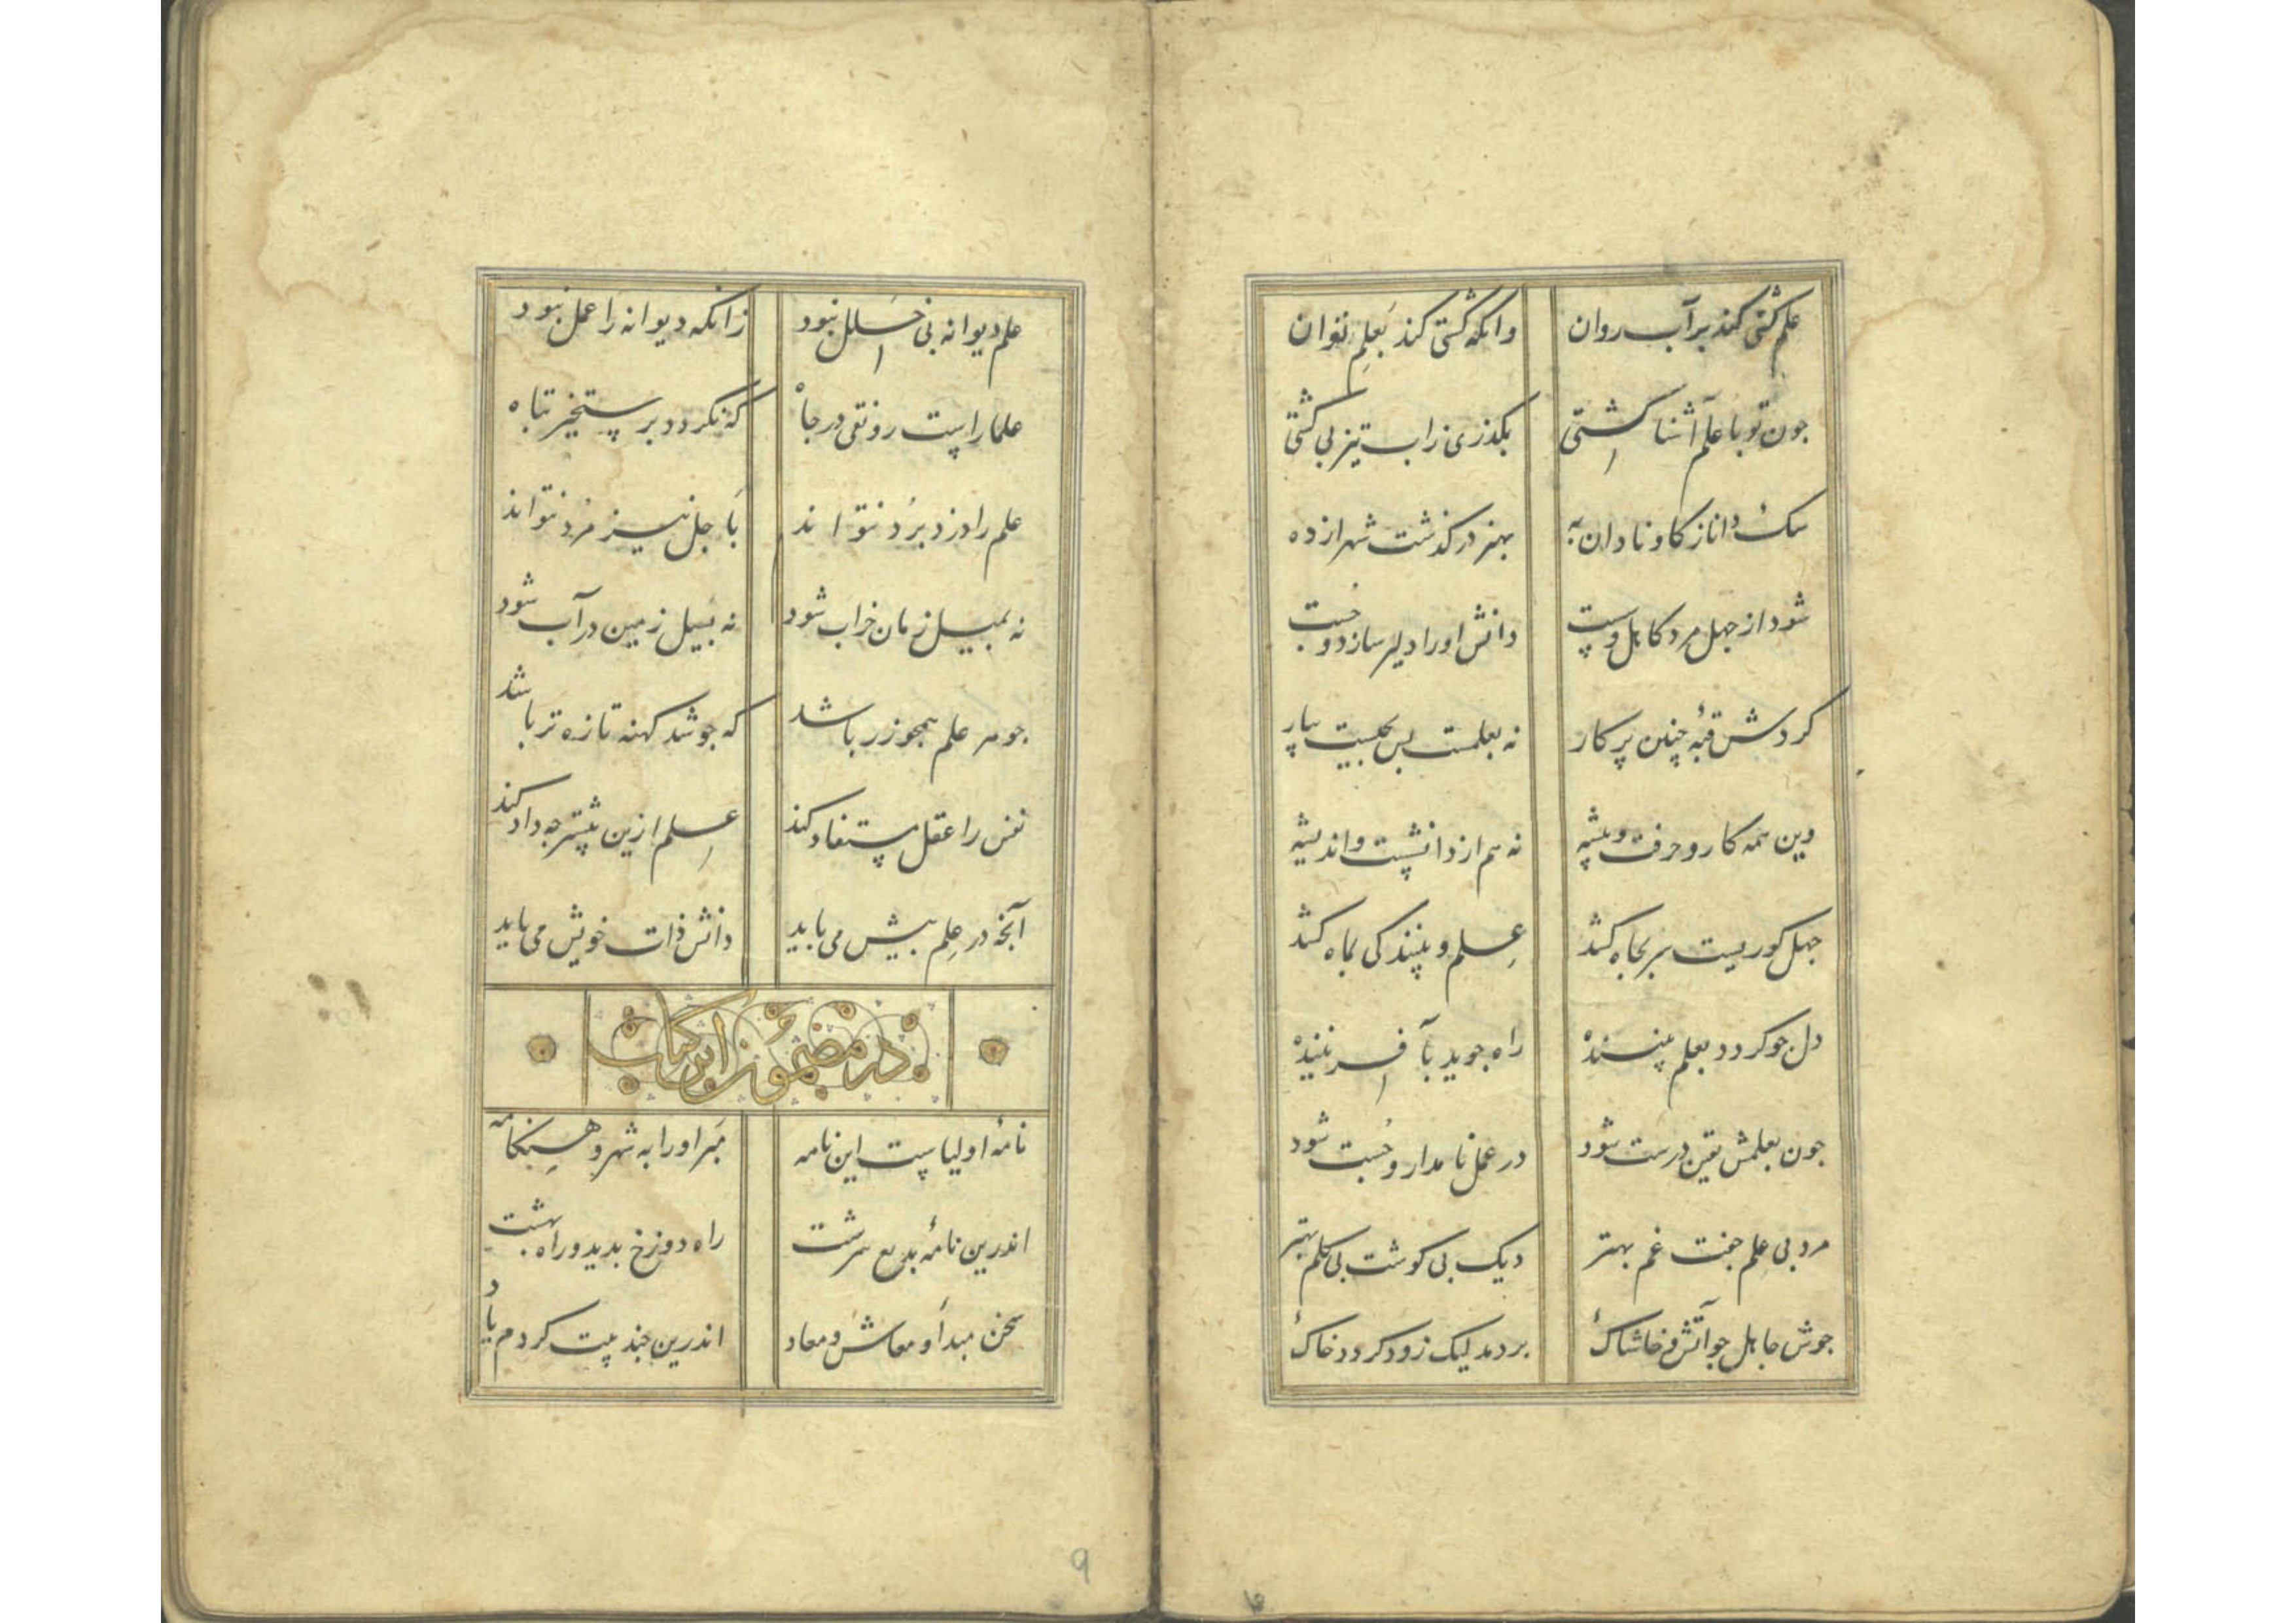 علم کشتی کند بر آب روان وانکه کشتی کند بعلم توان
جون تو با علم آشنا کشتی بکذری زاب تیز بی کشتی
سک دانا ز کاو نادان به بهنر در کذشت شهر از ده
شود از جهل مرد کاهل و سست دانش او را دلیر سازد و جست
کردش قبهٔ چنین پر کار نه بعلمست بس بجیست بیار
وین همه کار و حرفت و پیشه نه هم از دانشست و اندیشه
جهل کوریست سر بجاه کشد علم و بینندکی بماه کشد
دل جو کردد بعلم بیننده راه جوید بآفریننده
جون بعلمش یقین درست شود در عمل نامدار و جست شود
مرد بی علم جفت غم بهتر دیک بی کوشت بی کلم بهتر
جوش جاهل جو آتش و خاشاک بردمد لیک زود کردد خاک
علم دیوانه بی خلل نبود زانکه دیوانه را عمل نبود
علما راست رونقی در جاه که نکردد برستخیز تباه
علم را دزد برد نتواند باجل نیز مرد نتواند
نه بمیل زمان خراب شود نه بسیل زمین در آب شود
جوهر علم همجو زر باشد که جو شد کهنه تازه تر باشد
نفس را عقل مستفاد کند علم ازین بیشتر جه داد کند
آنجه در علم بیش می باید دانش ذات خویش می باید
در مضمون این کتاب
نامهٔ اولیاست این نامه مبر او را به شهر و هنکامه
اندرین نامهٔ بدیع سرشت راه دوزخ بدید و راه بهشت
سخن مبدأ و معاش و معاد اندرین جند بیت کردم یاد
۹